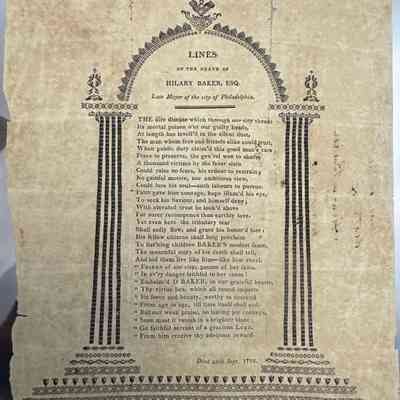 LINES
ON THE DEATH OF
HILARY BAKER, ESQ.
Late Mayor of the city of Philadelphia.
THE dire disease which through our city threw
Its mortal poison o'er our guilty heads,
At length has levell'd in the silent dust,
The man whom foes and friends alike could trust,
When public duty claim'd this good man's care
Peace to preserve, the gen'ral woe to share,
A thousand victims by the fever slain
Could raise no fears, his ardour to restrain;
No gainful motive, nor ambitious view,
Could lure his soul—such labours to pursue.
Faith gave him courage, hope illum'd his eye,
To seek his Saviour, and himself deny;
With elevated trust he look'd above
For surer recompence than earthly love.
Yet even here the tributary tear
Shall sadly flow, and grace his honor'd bier;
His fellow citizens shall long proclaim
To lisping children BAKER's modest fame,
The mournful story of his death shall tell,
And bid them live like him—like him excel.
" Patron of our city, patron of her fame,
" In ev'ry danger faithful to her claim
" Embalm'd O BAKER, in our grateful hearts,
" Thy virtue lies, which all around imparts
" Its sweet and beauty, worthy to succeed
" From age to age, till time itself shall end.
" But our weak praise, no lasting joy conveys,
" Soon must it vanish in a brighter blaze;
" Go faithful servant of a gracious LORD,
" From him receive thy adequate reward.
Died 25th Sept. 1798.